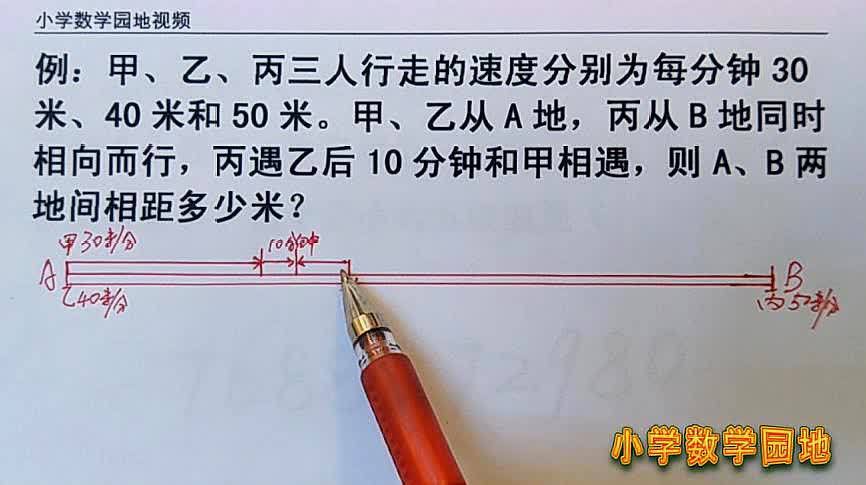 小学数学园地视频
例：甲、乙、丙三人行走的速度分别为每分钟 30
米、40 米和 50 米。甲、乙从 A 地，丙从 B 地同时
相向而行，丙遇乙后 10 分钟和甲相遇，则 A、B 两
地间相距多少米？
甲30米/分
10分钟
A
B
乙40米/分
丙50米/分
小学数学园地